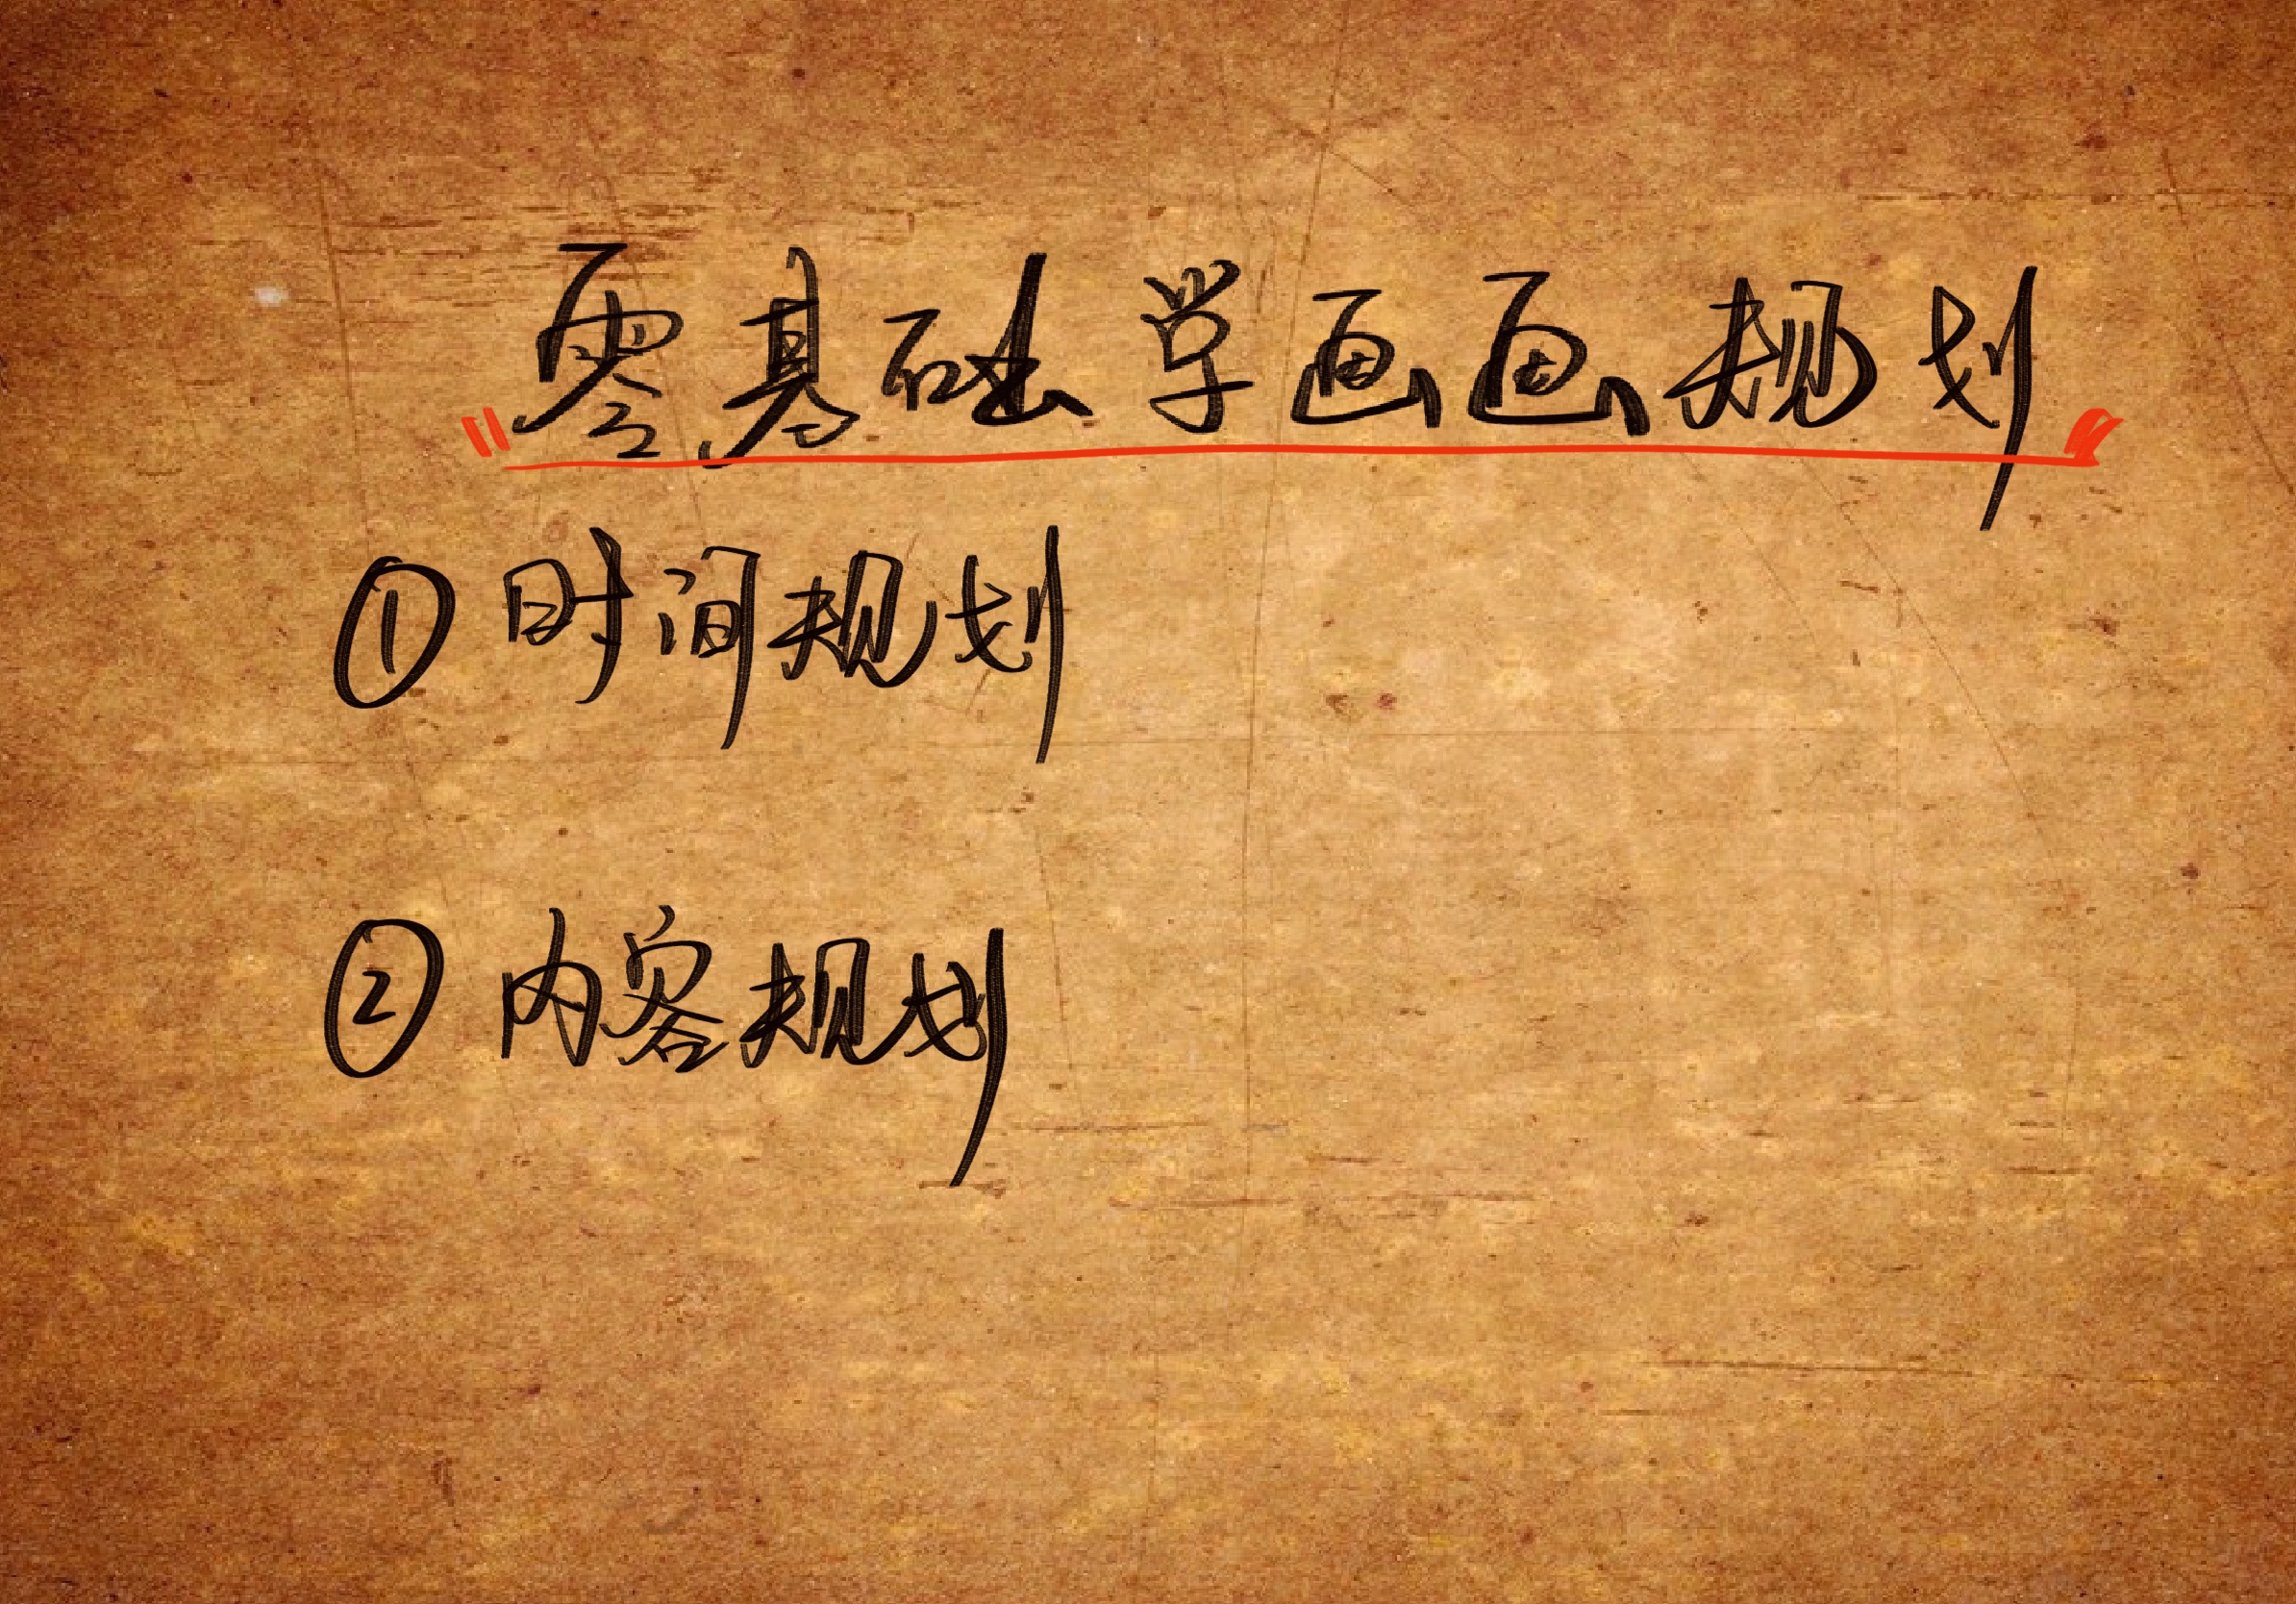 零基础学画画规划
①时间规划
②内容规划